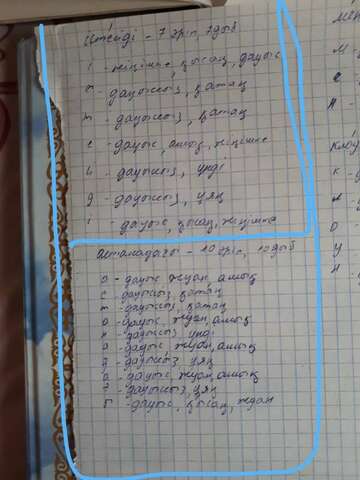 істейді - 7 әріп, 7 дыб
і - жіңішке, қысаң, дауыс
с - дауыссыз, қатаң
т - дауыссыз, қатаң
е - дауыс, ашық, жіңішке
й - дауыссыз, үнді
д - дауыссыз, ұяң
і - дауыс, қысаң, жіңішке
астанадағы - 10 әріп, 10 дыб
а - дауыс, жуан, ашық
с - дауыссыз, қатаң
т - дауыссыз, қатаң
а - дауыс, жуан, ашық
н - дауыссыз, үнді
а - дауыс, жуан, ашық
д - дауыссыз, ұяң
а - дауыс, жуан, ашық
ғ - дауыссыз, ұяң
ы - дауыс, қысаң, жуан